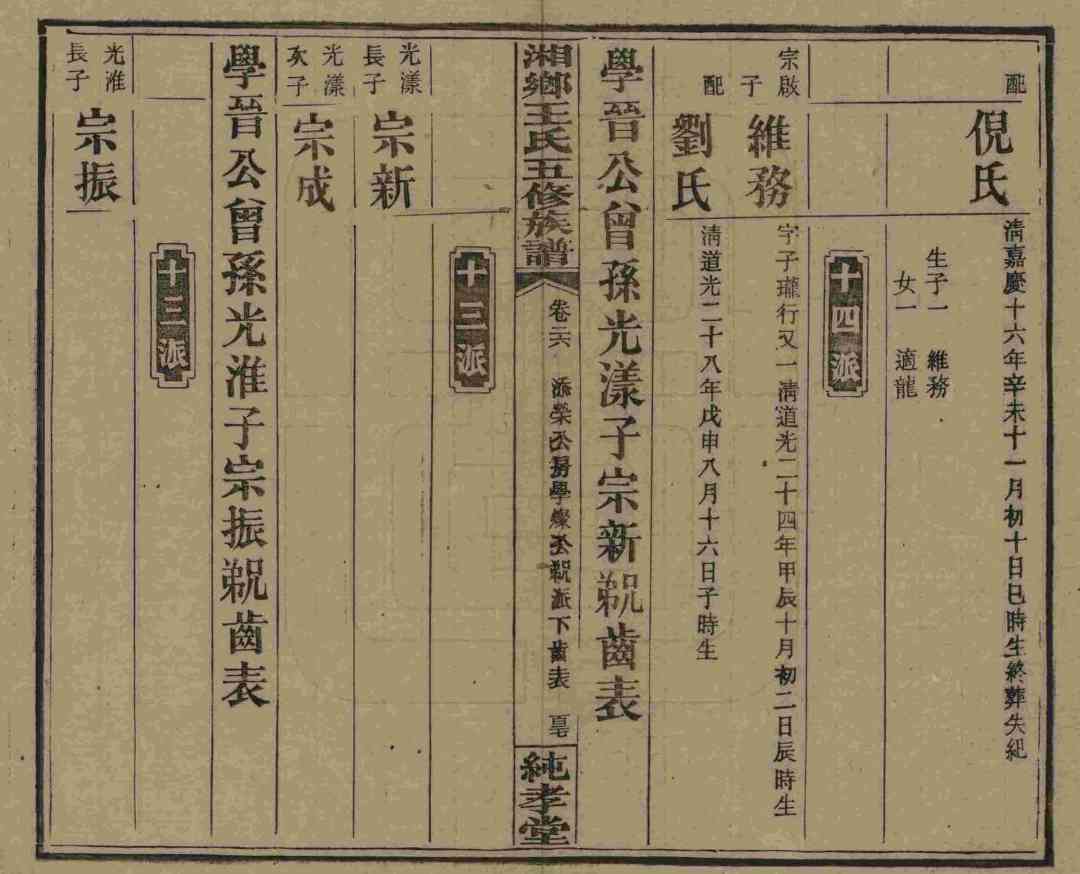 配
倪氏
清嘉慶十六年辛未十一月初十日巳時生終葬失紀
生子一 維務
女一 適龍
十四派
宗啟子
維務
字子瓏行又一清道光二十四年甲辰十月初二日辰時生
配
劉氏
清道光二十八年戊申八月十六日子時生
學晉公曾孫光漾子宗新覜齒表
湘鄉王氏五修族譜
卷六 添榮公房學燦公覜派下齒表
純孝堂
十三派
光漾長子
宗新
光漾次子
宗成
學晉公曾孫光淮子宗振覜齒表
十三派
光淮長子
宗振